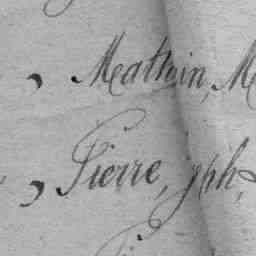 , Mathurin, M
, Pierre, jph,